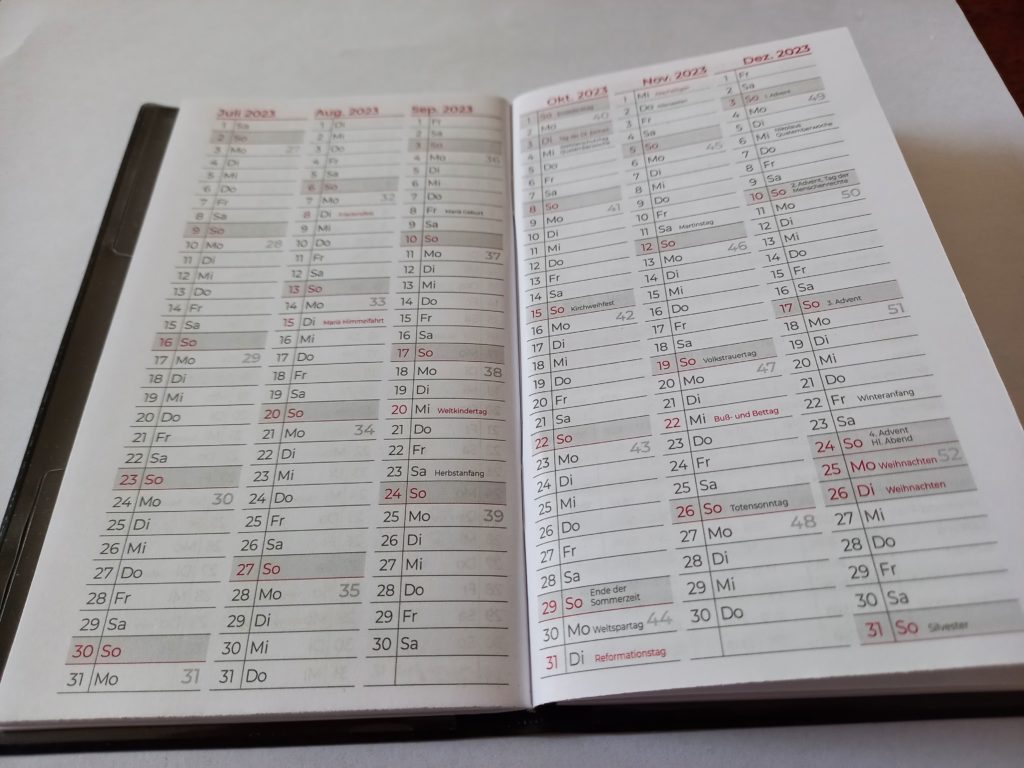 Juli 2023
1 Sa
2 So
3 Mo 27
4 Di
5 Mi
6 Do
7 Fr
8 Sa
9 So
10 Mo 28
11 Di
12 Mi
13 Do
14 Fr
15 Sa
16 So
17 Mo 29
18 Di
19 Mi
20 Do
21 Fr
22 Sa
23 So
24 Mo 30
25 Di
26 Mi
27 Do
28 Fr
29 Sa
30 So
31 Mo 31
Aug. 2023
1 Di
2 Mi
3 Do
4 Fr
5 Sa
6 So
7 Mo 32
8 Di Friedensfest
9 Mi
10 Do
11 Fr
12 Sa
13 So
14 Mo 33
15 Di Mariä Himmelfahrt
16 Mi
17 Do
18 Fr
19 Sa
20 So
21 Mo 34
22 Di
23 Mi
24 Do
25 Fr
26 Sa
27 So
28 Mo 35
29 Di
30 Mi
31 Do
Sep. 2023
1 Fr
2 Sa
3 So
4 Mo 36
5 Di
6 Mi
7 Do
8 Fr Mariä Geburt
9 Sa
10 So
11 Mo 37
12 Di
13 Mi
14 Do
15 Fr
16 Sa
17 So
18 Mo 38
19 Di
20 Mi Weltkindertag
21 Do
22 Fr
23 Sa Herbstanfang
24 So
25 Mo 39
26 Di
27 Mi
28 Do
29 Fr
30 Sa
Okt. 2023
1 So
2 Mo 40
3 Di Tag der Dt. Einheit
4 Mi
5 Do
6 Fr
7 Sa
8 So
9 Mo 41
10 Di
11 Mi
12 Do
13 Fr
14 Sa
15 So Kirchweihfest
16 Mo 42
17 Di
18 Mi
19 Do
20 Fr
21 Sa
22 So
23 Mo 43
24 Di
25 Mi
26 Do
27 Fr
28 Sa
29 So Ende der
Sommerzeit
30 Mo Weltspartag 44
31 Di Reformationstag
Nov. 2023
1 Mi Allerheiligen
2 Do Allerseelen
3 Fr
4 Sa
5 So
6 Mo 45
7 Di
8 Mi
9 Do
10 Fr
11 Sa Martinstag
12 So
13 Mo 46
14 Di
15 Mi
16 Do
17 Fr
18 Sa
19 So Volkstrauertag
20 Mo 47
21 Di
22 Mi Buß- und Bettag
23 Do
24 Fr
25 Sa
26 So Totensonntag
27 Mo 48
28 Di
29 Mi
30 Do
Dez. 2023
1 Fr
2 Sa
3 So 1. Advent
4 Mo 49
5 Di
6 Mi Nikolaus
Quatemberwoche
7 Do
8 Fr
9 Sa
10 So 2. Advent, Tag der
Menschenrechte
11 Mo 50
12 Di
13 Mi
14 Do
15 Fr
16 Sa
17 So 3. Advent
18 Mo 51
19 Di
20 Mi
21 Do
22 Fr Winteranfang
23 Sa
24 So 4. Advent
Hl. Abend
25 Mo Weihnachten 52
26 Di Weihnachten
27 Mi
28 Do
29 Fr
30 Sa
31 So Silvester